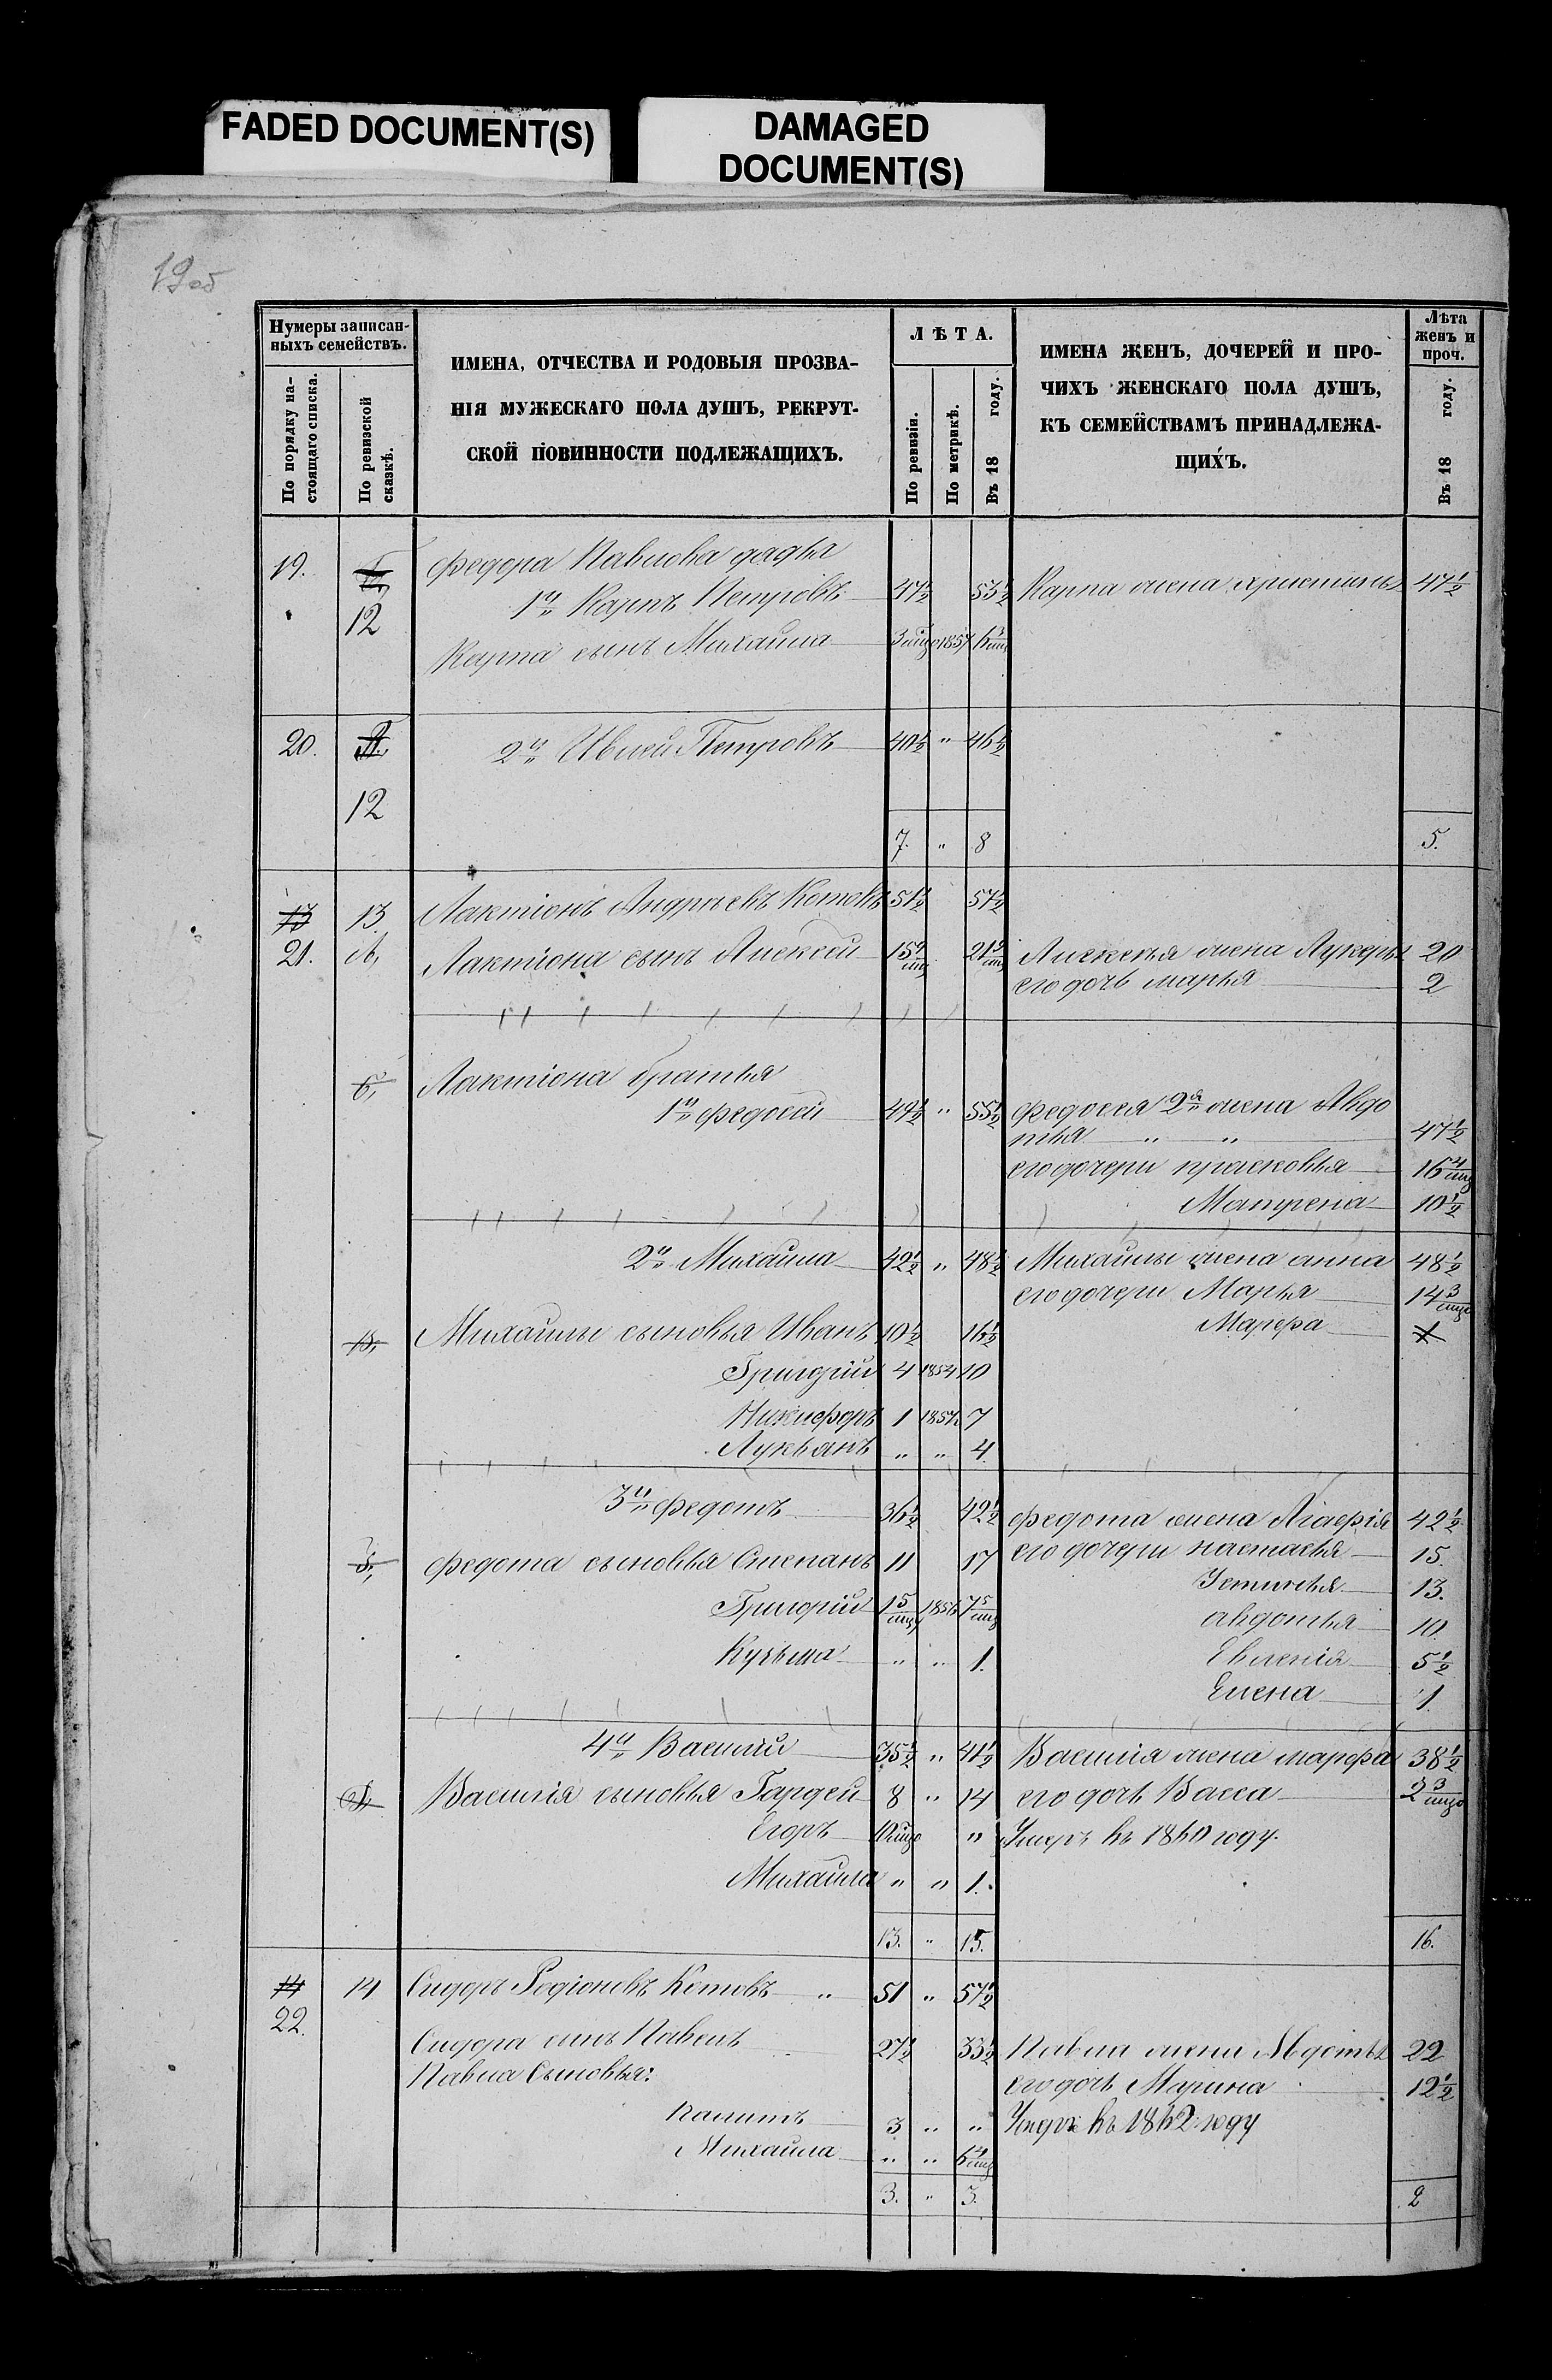 FADED DOCUMENT(S)
DAMAGED
DOCUMENT(S)
19 об
Нумеры записан-
ныхъ семействъ.
По порядку на-
стоящаго списка.
По ревизской
сказкѣ.
ИМЕНА, ОТЧЕСТВА И РОДОВЫЯ ПРОЗВА-
НІЯ МУЖЕСКАГО ПОЛА ДУШЪ, РЕКРУТ-
СКОЙ ПОВИННОСТИ ПОДЛЕЖАЩИХЪ.
ЛѢТА.
По ревизіи.
По метрикѣ.
Въ 18 году.
ИМЕНА ЖЕНЪ, ДОЧЕРЕЙ И ПРО-
ЧИХЪ ЖЕНСКАГО ПОЛА ДУШЪ,
КЪ СЕМЕЙСТВАМЪ ПРИНАДЛЕЖА-
ЩИХЪ.
Лѣта
женъ и
проч.
Въ 18 году.
19. Федора Павлова дядья
12 1й Карпъ Петровъ 47½ 53½ Карпа жена христинья 47½
Карпа сынъ Михайла 3 мцо 1857
20. 2й Ивлей Петровъ 40½ " 46½
12
7. " 8 5.
13 13 Лактіонъ Андреевъ Котовъ 51½ 57½
21. А, Лактіона сынъ Алексей Алексея жена Лукерья 20
его дочь марья 2
б, Лактіона братья
1й федосей 49½ " 55½ федосея 2я жена Авдо
тья " " 47½
его дочери прасковья
Матрена 10½
2й Михайла 42½ " 48½ Михайлы жена анна 48½
его дочери Марья 14 3/мцо
в, Михайлы сыновья Иванъ 10½ 16½ Марфа 1
Григорій 4 1854 10
Никифоръ 1 1857 7
Лукьянъ " " 4.
3й федотъ 36½ 42½ федота жена 42½
федота сыновья Степанъ 11 17 его дочери настасья 15.
Устинья 13.
Григорій 1 5/мцу 1856 7 5/мцу авдотья 10.
Кузьма " " 1. Евгенія 5½
Елена 1.
4й Василій 35½ " 41½ Василія жена марфа 38½
Василія сыновья Гардей 8 " 14 его дочь Васса 2 3/мцо
Егоръ " Умеръ въ 1860 году.
Михайла " " 1.
13. " 15. 16.
14 14 Сидоръ Родіоновъ Котовъ " 51 " 57½
22.
Сидора сынъ Павелъ 27½ 33½ Павла жена Авдотья 22
Павла Сыновья: его дочь Марина 12½
3 " " Умеръ въ 1862 году
Михайла " "
3. " 3. 2